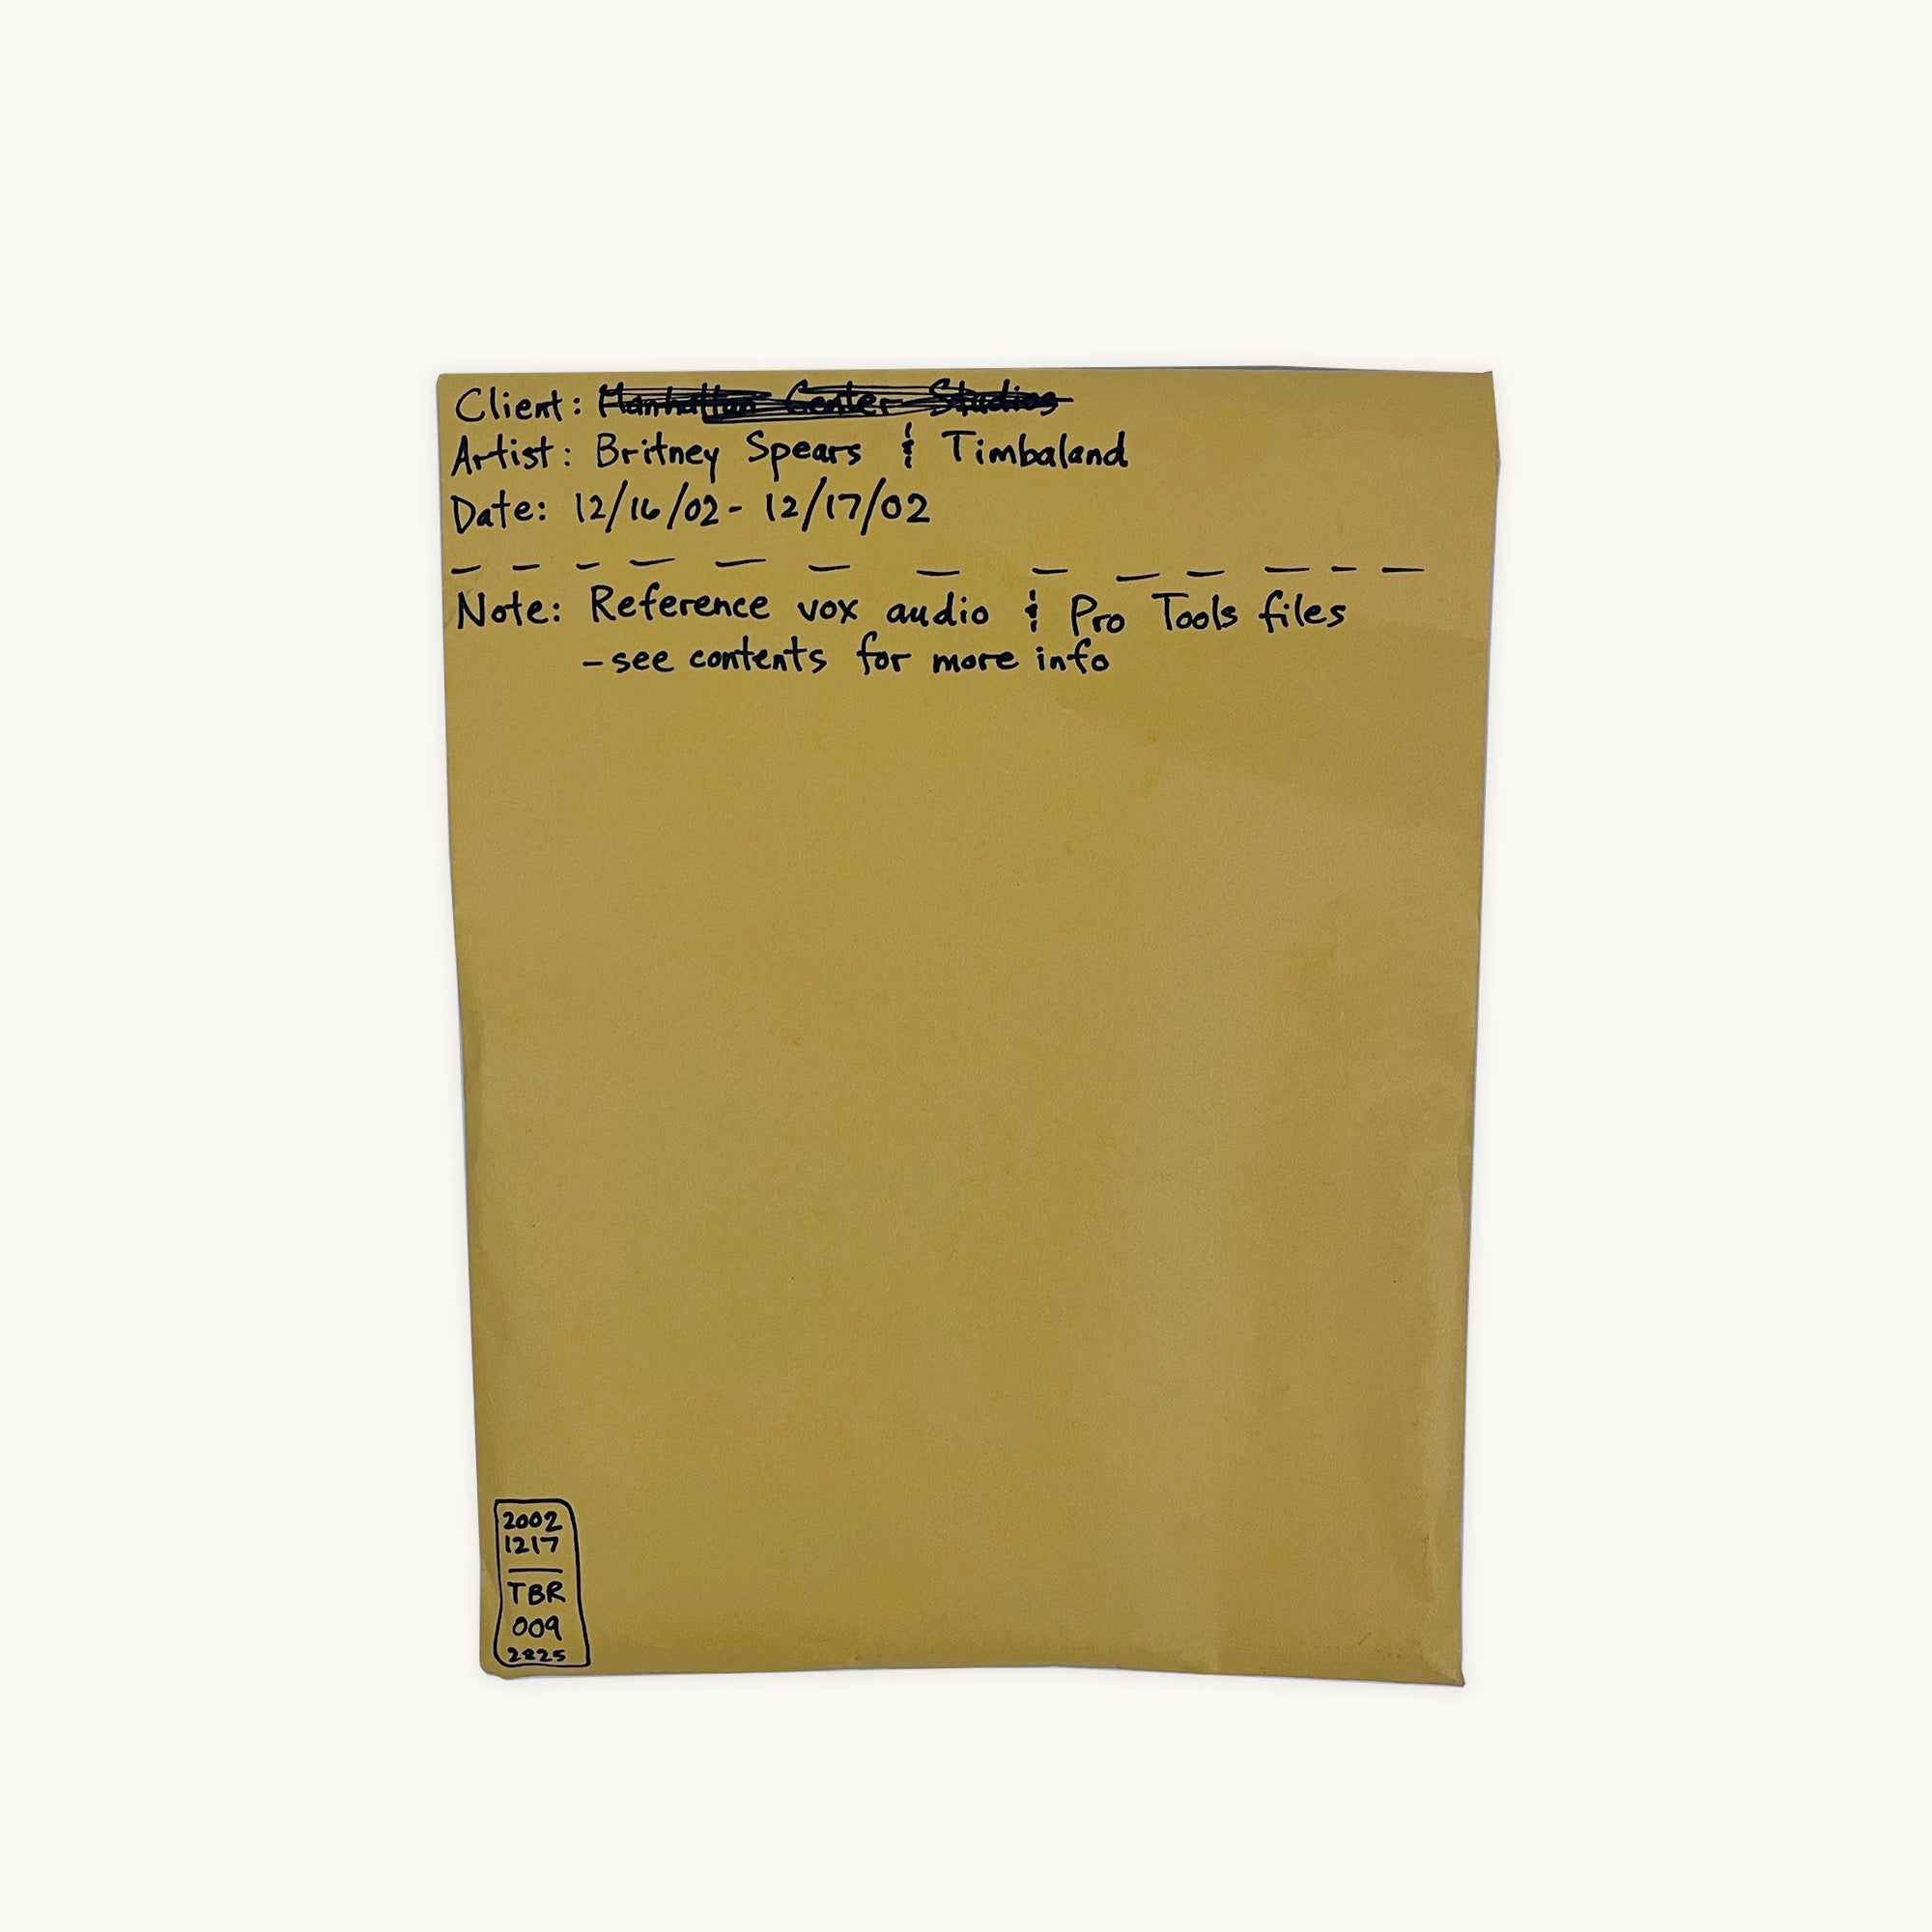 Client: Manhattan Center Studios
Artist: Britney Spears & Timbaland
Date: 12/16/02 - 12/17/02
Note: Reference vox audio & Pro Tools files
- see contents for more info
2002
1217
TBR
009
2825